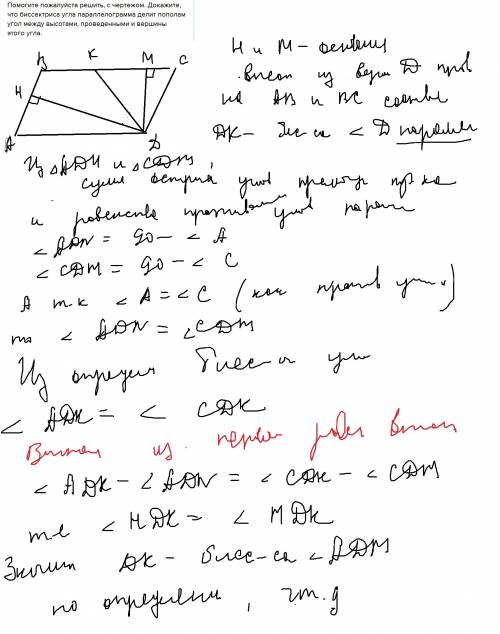 Помогите пожалуйста решить, с чертежом. Докажите,
что биссектриса угла параллелограмма делит пополам
угол между высотами, проведенными и вершины
этого угла.
B K M C
H
A D
H и M -
высот из верш D пров
на AB и BC соотве
DK - бис-са < D паралл
Из △ADH и △CDM,
сумм острых углов прямоуг
и равенства против углов паралл
< ADH = 90 - < A
< CDM = 90 - < C
А т.к < A = < C (как против угл.)
то < ADH = < CDM
Из определ бисс-и угл
< ADK = < CDK
Вычтем из перв равен
< ADK - < ADH = < CDK - < CDM
т.е < HDK = < MDK
Значит DK - бисс-са < HDM
по определени, ч.т.д